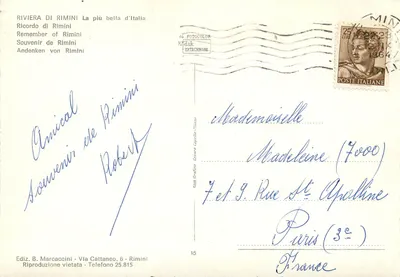 RIVIERA DI RIMINI La più bella d'Italia
Ricordo di Rimini
Remember of Rimini
Souvenir de Rimini
Andenken von Rimini
25
POSTE ITALIANE
Amical
souvenir de Rimini
Robert
Mademoiselle
Madeleine (7000)
7 et 9 Rue Ste Apolline
Paris (3e)
France
Ediz. B. Marzaccini - Via Cattaneo, 6 - Rimini
Riproduzione vietata - Telefono 25.815
15